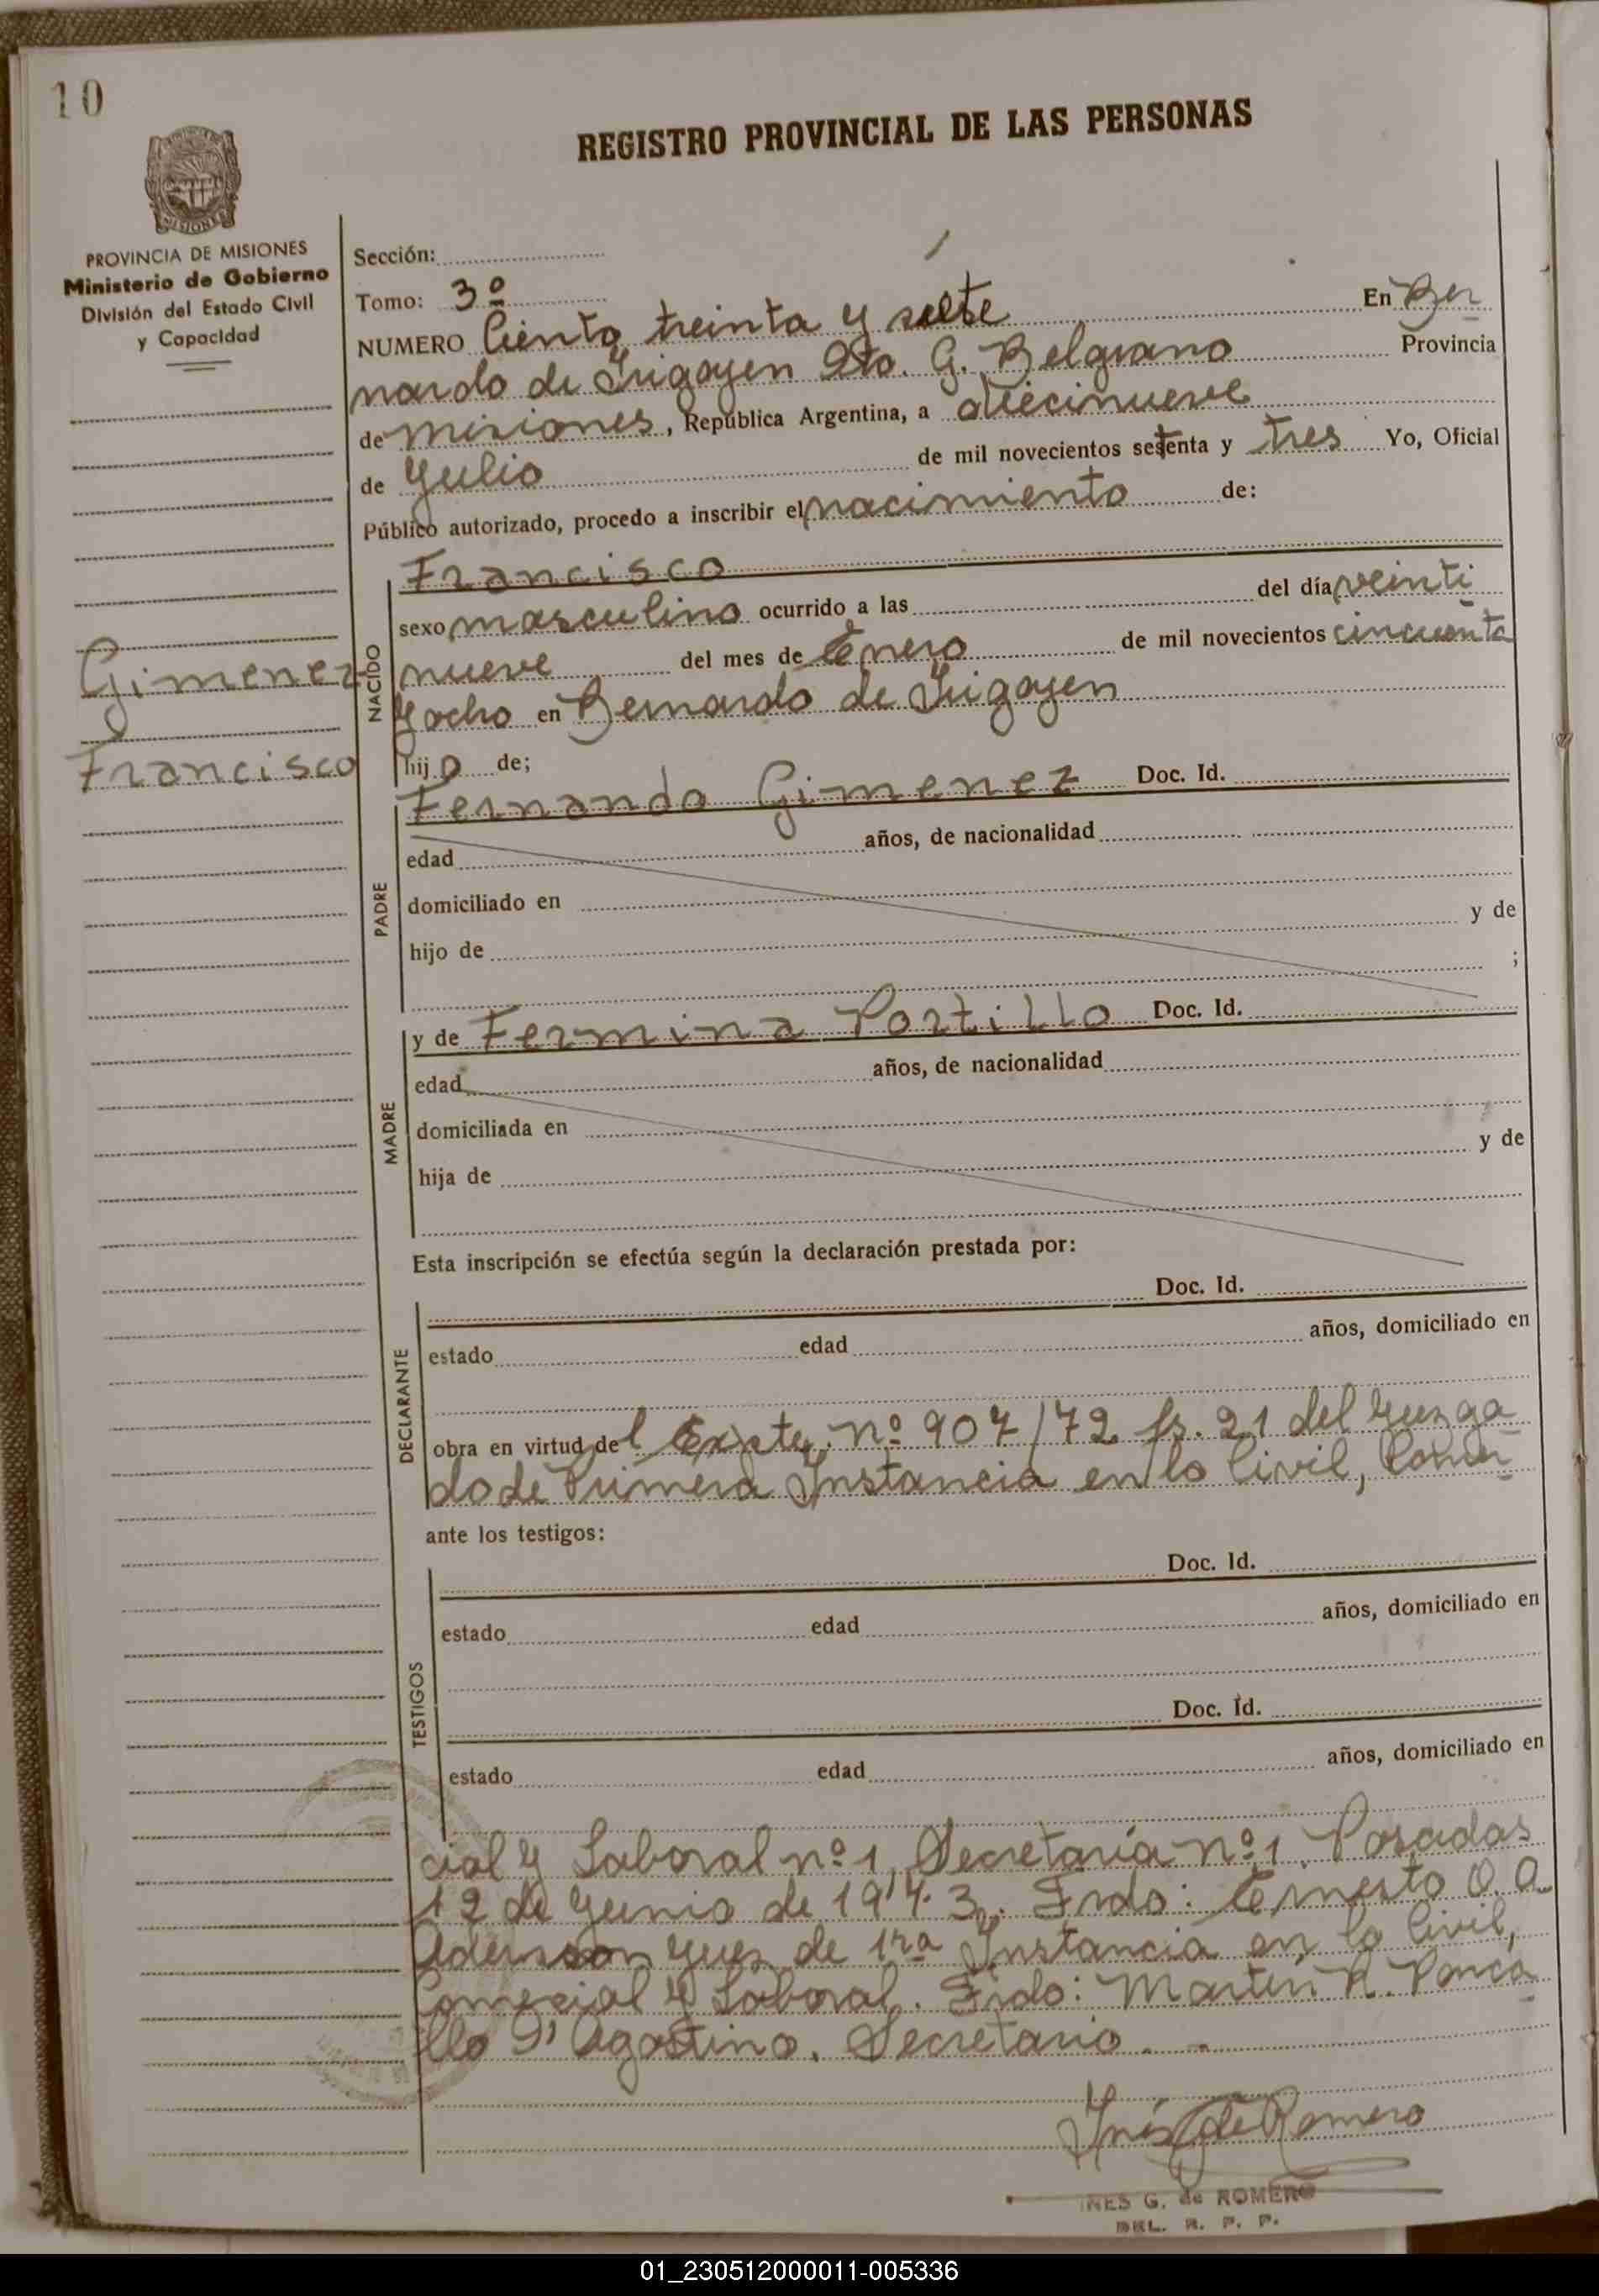 10
REGISTRO PROVINCIAL DE LAS PERSONAS
MISIONES
PROVINCIA DE MISIONES
Ministerio de Gobierno
División del Estado Civil
y Capacidad
Gimenez
Francisco
Sección:
Tomo: 3º
NUMERO Ciento treinta y siete En Ber
nardo de Irigoyen Dto. G. Belgrano Provincia
de Misiones, República Argentina, a diecinueve
de Julio de mil novecientos setenta y tres Yo, Oficial
Público autorizado, procedo a inscribir el nacimiento de:
NACIDO
Francisco
sexo masculino ocurrido a las del día veinti
nueve del mes de Enero de mil novecientos cincuenta
y ocho en Bernardo de Irigoyen
hijo de;
PADRE
Fernando Gimenez Doc. Id.
edad años, de nacionalidad
domiciliado en
hijo de y de
;
MADRE
y de Fermina Portillo Doc. Id.
edad años, de nacionalidad
domiciliada en
hija de y de
Esta inscripción se efectúa según la declaración prestada por:
DECLARANTE
Doc. Id.
estado edad años, domiciliado en
obra en virtud del Expte. nº 907/72 fs. 21 del Juzga
do de Primera Instancia en lo Civil, Comer
ante los testigos:
TESTIGOS
Doc. Id.
estado edad años, domiciliado en
Doc. Id.
estado edad años, domiciliado en
cial y Laboral nº 1, Secretaría nº 1. Posadas
12 de Junio de 1973. Fdo: Ernesto O. A.
Juez de 1ra Instancia en lo Civil,
Comercial y Laboral. Fdo: Martín R.
D'Agostino. Secretario.
Inés G de Romero
INES G. de ROMERO
DEL. R. P. P.
01_230512000011-005336